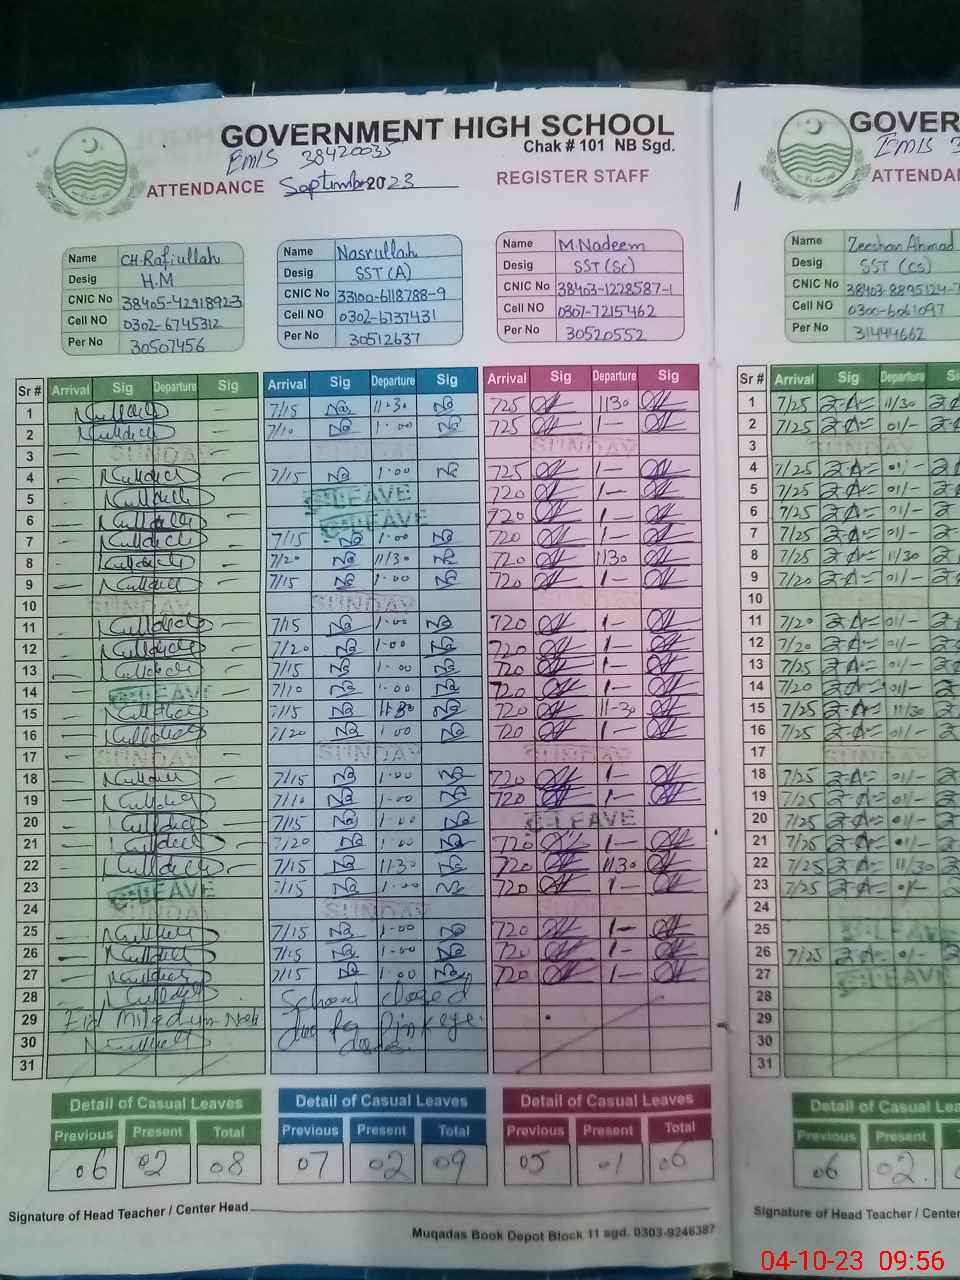 GOVERNMENT HIGH SCHOOL
Chak # 101 NB Sgd.
EMIS 38420035
ATTENDANCE September 2023 REGISTER STAFF
Name CH.Rafiullah
Desig H.M
CNIC No 38405-4291892-3
Cell NO 0302-6745312
Per No 30507456
Name Nasrullah
Desig SST (A)
CNIC No 33100-6118788-9
Cell NO 0302-6737431
Per No 30512637
Name M.Nadeem
Desig SST (Sc)
CNIC No 38403-1228587-1
Cell NO 0307-7215462
Per No 30520552
Sr # Arrival Sig Departure Sig Arrival Sig Departure Sig Arrival Sig Departure Sig
1 7/15 Na 11-30 Na 725 1130
2 7/10 Na 1-00 Na 725 1-
3 SUNDAY SUNDAY SUNDAY
4 7/15 Na 1-00 Na 725 1-
5 C-LEAVE 720 1-
6 C-LEAVE 720 1-
7 7/15 Na 1-00 Na 720 1-
8 7/20 Na 11/30 Na 720 1130
9 7/15 Na 1-00 Na 720 1-
10 SUNDAY SUNDAY SUNDAY
11 7/15 Na 1-00 Na 720 1-
12 7/20 Na 1-00 Na 720 1-
13 7/15 Na 1-00 Na 720 1-
14 C-LEAVE 7/10 Na 1-00 Na 720 1-
15 7/15 Na 11-30 Na 720 11-30
16 7/20 Na 1 00 Na 720 1-
17 SUNDAY SUNDAY SUNDAY
18 7/15 Na 1-00 Na 720 1-
19 7/10 Na 1-00 Na 720 1-
20 7/15 Na 1-00 Na C-LEAVE
21 7/20 Na 1-00 Na 720 1-
22 7/15 Na 1130 Na 720 1130
23 C-LEAVE 7/15 Na 1-00 Na 720 1-
24 SUNDAY SUNDAY SUNDAY
25 7/15 Na 1-00 Na 720 1-
26 7/15 Na 1-00 Na 720 1-
27 7/15 Na 1-00 Na 720 1-
28 School closed
29 Eid Milad un Nabi due to Pink eye
30
31
Detail of Casual Leaves Detail of Casual Leaves Detail of Casual Leaves
Previous Present Total Previous Present Total Previous Present Total
06 02 08 07 02 09 05 01 06
Signature of Head Teacher / Center Head
Muqadas Book Depot Block 11 sgd. 0303-9246387
GOVER
EMIS 3
ATTENDAN
Name Zeeshan Ahmad
Desig SST (CS)
CNIC No 38403-8895124-7
Cell NO 0300-6061097
Per No 31444662
Sr # Arrival Sig Departure Si
1 7/25 Z-A 11/30
2 7/25 Z-A 01/-
3 SUNDAY
4 7/25 Z-A 01/-
5 7/25 Z-A 01/-
6 7/25 Z-A 01/-
7 7/25 Z-A 01/-
8 7/25 Z-A 11/30
9 7/20 Z-A 01/-
10
11 7/20 Z-A 01/-
12 7/20 Z-A 01/-
13 7/25 Z-A 01/-
14 7/20 Z-A 01/-
15 7/25 Z-A 11/30
16 7/25 Z-A 01/-
17 SUNDAY
18 7/25 Z-A 01/-
19 7/25 Z-A 01/-
20 7/25 Z-A 01/-
21 7/25 Z-A 01/-
22 7/25 Z-A 11/30
23 7/25 Z-A 01/-
24
25 C-LEAVE
26 7/25 Z-A 01/-
27 C-LEAVE
28
29
30
31
Detail of Casual Lea
Previous Present
06 02
Signature of Head Teacher / Cente
04-10-23 09:56